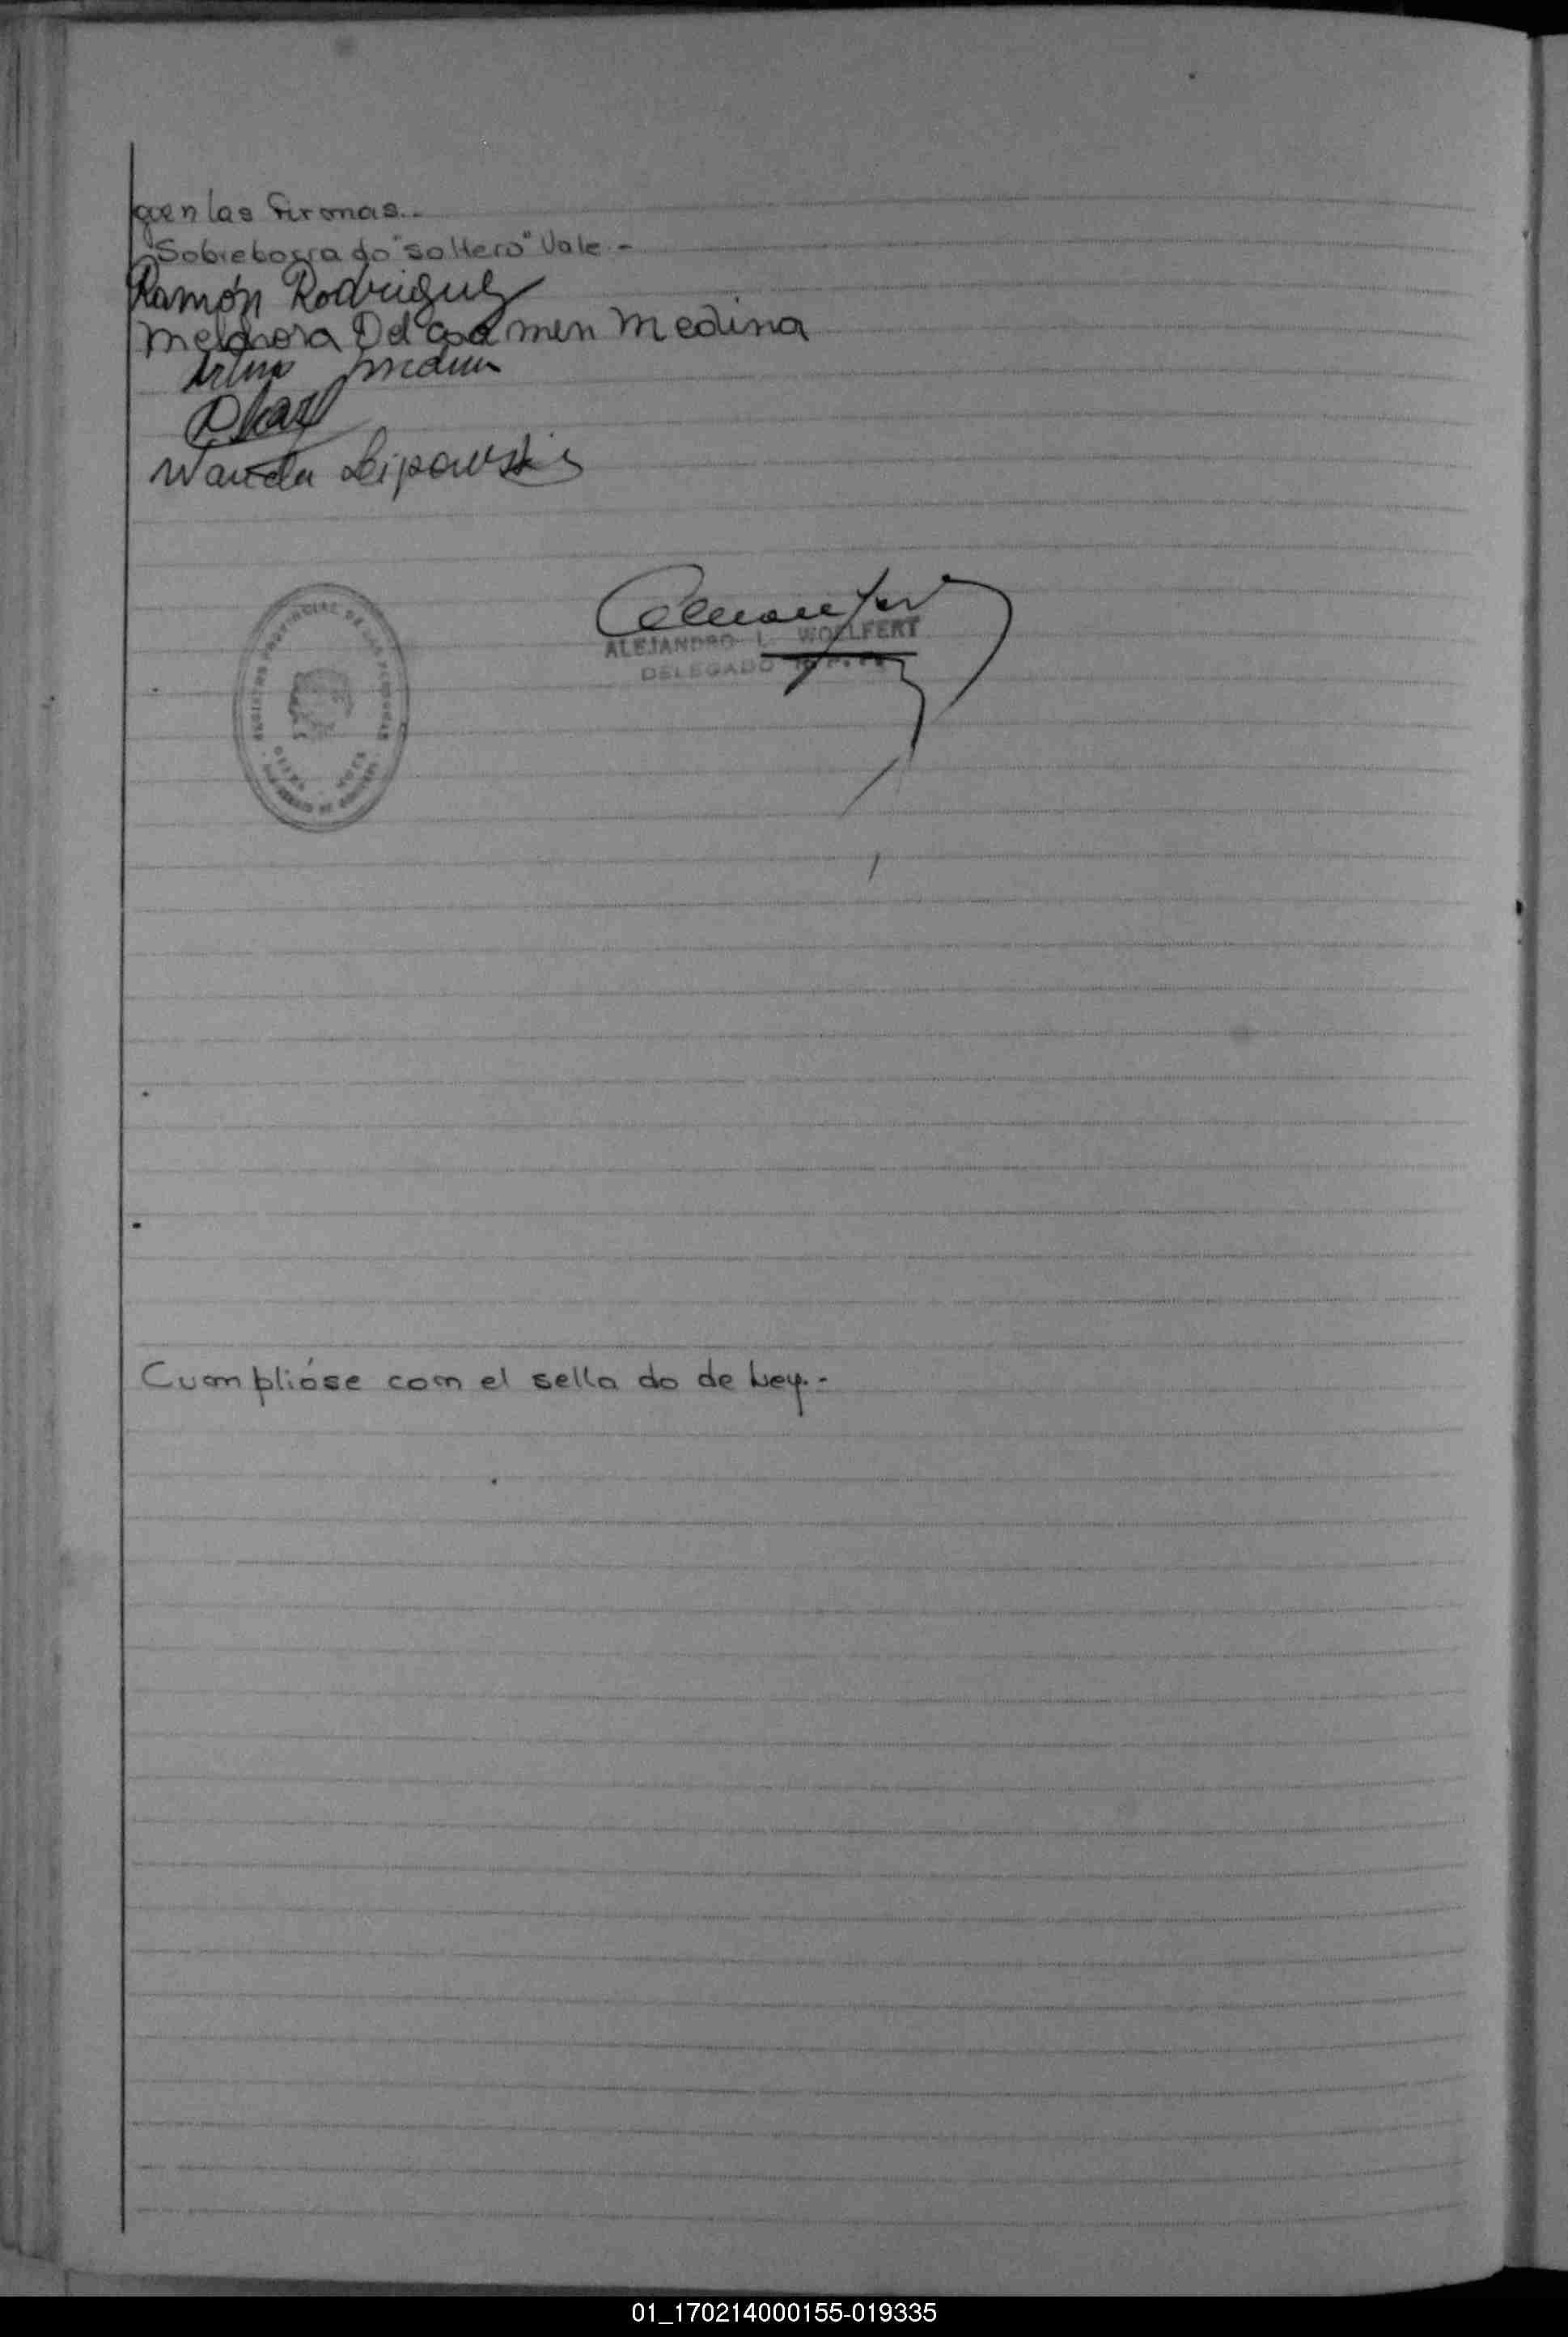 guen las firmas.-
Sobreborrado "soltero" Vale.-
Ramón Rodriguez
Melchora Del Carmen Medina
Arturo Medina
Wanda Lipowski
REGISTRO PROVINCIAL DE LAS PERSONAS
ALEJANDRO L. WOELFERT
DELEGADO
Cumplióse con el sellado de Ley.-
01_170214000155-019335